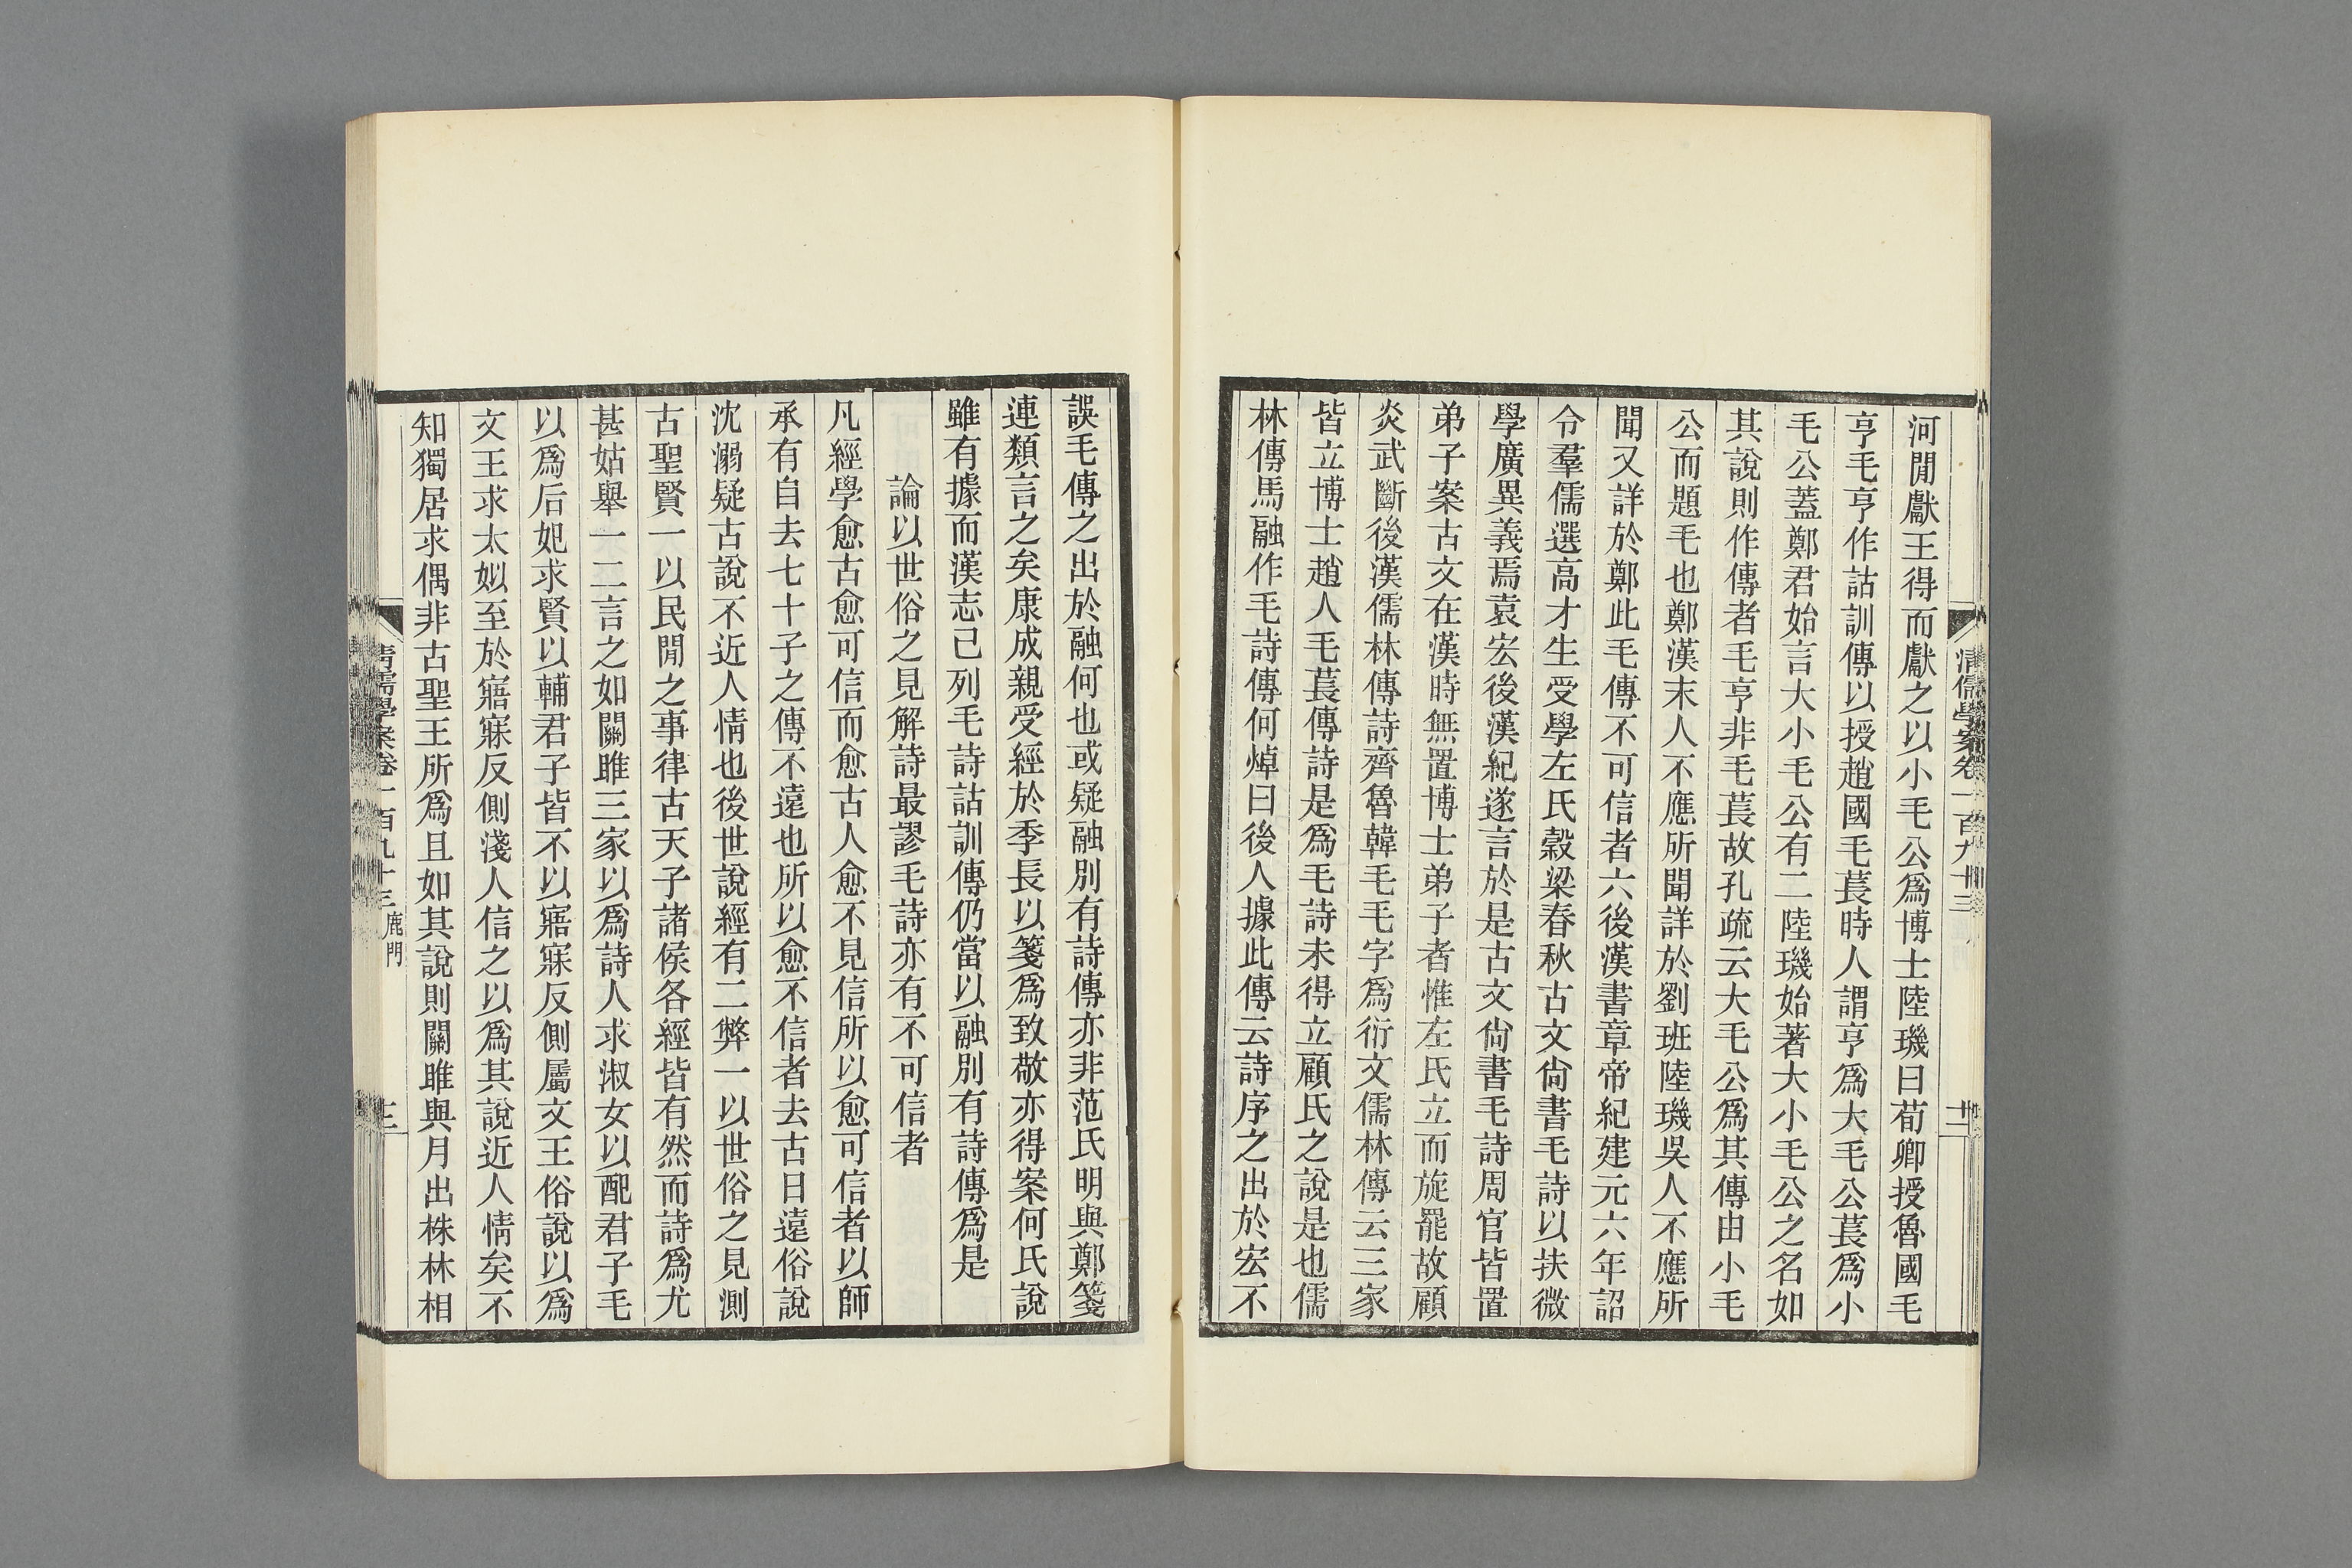 河閒獻王得而獻之以小毛公爲博士陸璣曰荀卿授魯國毛
亨毛亨作詁訓傳以授趙國毛萇時人謂亨爲大毛公萇爲小
毛公蓋鄭君始言大小毛公有二陸璣始著大小毛公之名如
其說則作傳者毛亨非毛萇故孔疏云大毛公爲其傳由小毛
公而題毛也鄭漢末人不應所聞詳於劉班陸璣吳人不應所
聞又詳於鄭此毛傳不可信者六後漢書章帝紀建元六年詔
令羣儒選高才生受學左氏穀梁春秋古文尙書毛詩以扶微
學廣異義焉袁宏後漢紀遂言於是古文尙書毛詩周官皆置
弟子案古文在漢時無置博士弟子者惟左氏立而旋罷故顧
炎武斷後漢儒林傳詩齊魯韓毛毛字爲衍文儒林傳云三家
皆立博士趙人毛萇傳詩是爲毛詩未得立顧氏之說是也儒
林傳馬融作毛詩傳何焯曰後人據此傳云詩序之出於宏不
誤毛傳之出於融何也或疑融別有詩傳亦非范氏明與鄭箋
連類言之矣康成親受經於季長以箋爲致敬亦得案何氏說
雖有據而漢志已列毛詩詁訓傳仍當以融別有詩傳爲是
論以世俗之見解詩最謬毛詩亦有不可信者
凡經學愈古愈可信而愈古人愈不見信所以愈可信者以師
承有自去七十子之傳不遠也所以愈不信者去古日遠俗說
沈溺疑古說不近人情也後世說經有二弊一以世俗之見測
古聖賢一以民閒之事律古天子諸侯各經皆有然而詩爲尤
甚姑舉一二言之如關雎三家以爲詩人求淑女以配君子毛
以爲后妃求賢以輔君子皆不以寤寐反側屬文王俗說以爲
文王求太姒至於寤寐反側淺人信之以爲其說近人情矣不
知獨居求偶非古聖王所爲且如其說則關雎與月出株林相
清儒學案卷一百九十三 鹿門